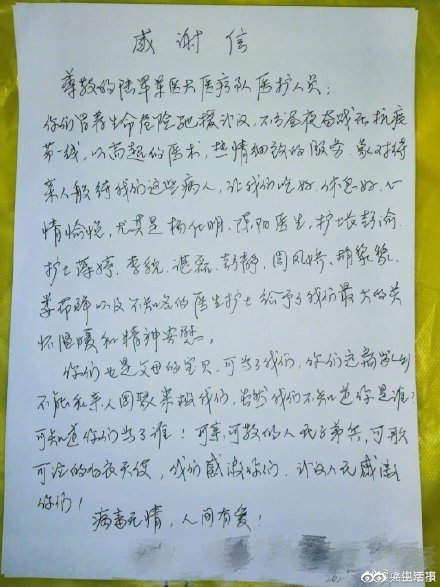 感谢信
尊敬的陆军军医大医疗队医护人员:
你们冒着生命危险驰援武汉,不分昼夜奋战在抗疫
第一线,以高超的医术,热情细致的服务,象对待
亲人般待我们这些病人,让我们吃好、休息好、心
情愉悦,尤其是杨仕明、陈阳医生,护士长彭渝、
护士薄婷、李 、 磊、彭静、周凤娇、
李 以及不知名的医生护士给予了我们最大的关
怀温暖和精神安慰。
你们也是父母的宝贝,可为了我们,你们这新
不能和亲人团聚来 我们,虽然我们不知道你是谁?
可知道你们为了谁!可亲,可敬的人民子弟兵,可歌
可泣的白衣天使,我们感激你们,武汉人民感激
你们!
病毒无情,人间有爱!